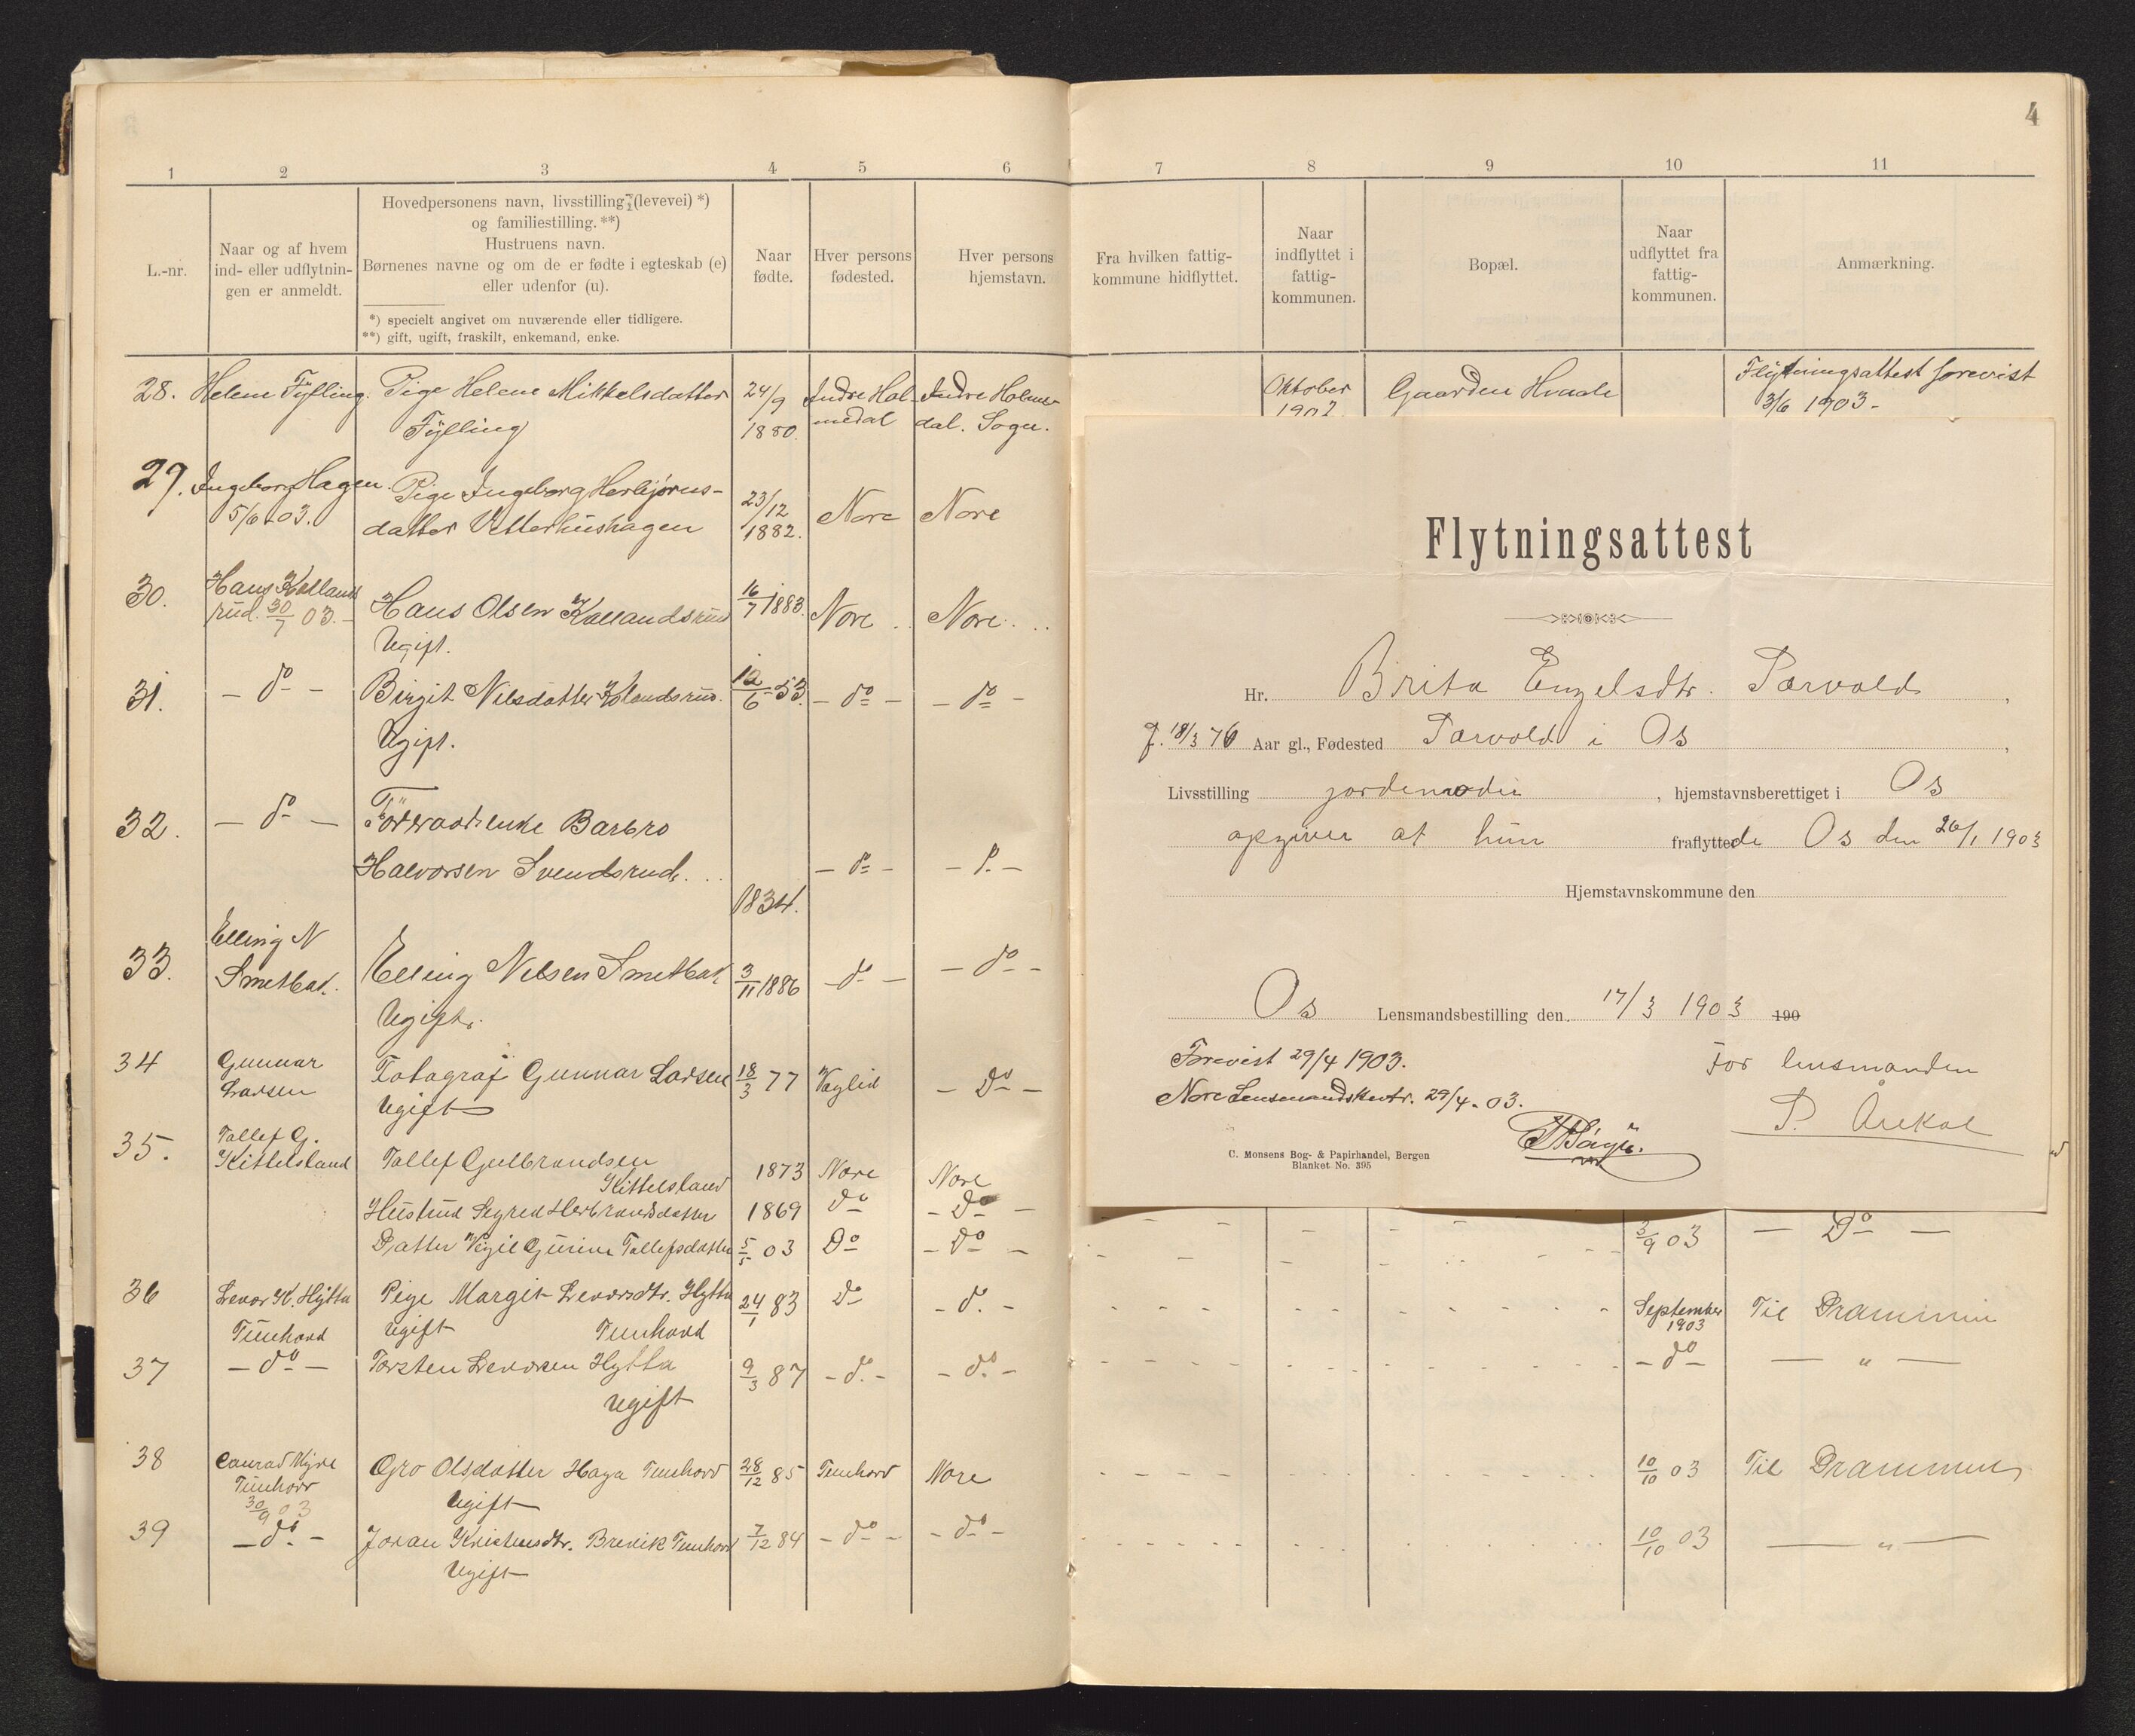 4
1 2 3 4 5 6 7 8 9 10 11
L.-nr.
Naar og af hvem
ind- eller udflytnin-
gen er anmeldt.
Hovedpersonens navn, livsstilling (levevei) *)
og familiestilling. **)
Hustruens navn.
Børnenes navne og om de er fødte i egteskab (e)
eller udenfor (u).
*) specielt angivet om nuværende eller tidligere.
**) gift, ugift, fraskilt, enkemand, enke.
Naar
fødte.
Hver persons
fødested.
Hver persons
hjemstavn.
Fra hvilken fattig-
kommune hidflyttet.
Naar
indflyttet i
fattig-
kommunen.
Bopæl.
Naar
udflyttet fra
fattig-
kommunen.
Anmærkning.
28. Helene Fylling. Pige Helene Mikkelsdatter 24/9 Indre Hol- Indre Holme- Oktober Gaarden Hvaale Flytningsattest forevist
Fylling 1880. medal dal. Sogn. 1902 3/6 1903-
29. Ingeborg Hagen. Pige Ingeborg Herbjørns- 23/12 Nore Nore
5/6 03. datter Vetterhushagen 1882.
30. Hans Kolland Hans Olsen Kollandsrud 16/7 1883. Nore Nore
rud. 30/7 03. Ugift.
31. - do - Birgit Nilsdatter Kolandsrud. 12/6 53. - do - - do -
Ugift.
32. - do - Føderaadsenke Barbro
Halvorsen Svendsrud. - do - - do -
1834.
33. Elling N
Smetbak. Elling Nilsen Smetbak 3/11 1886 - do - - do -
Ugift.
34 Gunnar Fotograf Gunnar Larsen 18/3 77 - Do -
Larsen Ugift
35. Tollef G.
Kittelsland Tollef Gulbrandsen
Kittelsland 1873 Nore Nore
Hustru Sigrid Herbrandsdatter 1869 do - Do -
Datter Gurine Tollefsdatter 5/5 03 Do - Do - 3/9 03 - Do -
36 Levor K. Hytta Pige Margit Levorsdtr. Hytta 24/1 83 do - do. - September Til Drammen
Tunhovd ugift Tunhovd 1903
37 - do - Torsten Levorsen Hytta 9/3 87 - do. - - do. - - do - - " -
ugift
38 Conrad Myre Gro Olsdatter Haga Tunhovd 28/12 85 Tunhovd Nore 10/10 03 Til Drammen
Tunhovd Ugift
30/9 03
39 - do. - Joran Kristensdtr. Brevik Tunhovd 7/12 84 - do - - do - 10/10 03 - " -
Ugift
Flytningsattest
Hr. Brita Engelsdtr. Tærvold,
f. 18/3 76 Aar gl., Fødested Tærvold i Os,
Livsstilling jordemoder, hjemstavnsberettiget i Os
opgiver at hun fraflyttede Os den 26/1 1903
Hjemstavnskommune den
Os Lensmandsbestilling den 17/3 1903 190
Forevist 29/4 1903. For lensmanden
Nore Lensmandskontr. 29/4. 03.
C. Monsens Bog- & Papirhandel, Bergen
Blanket No. 395